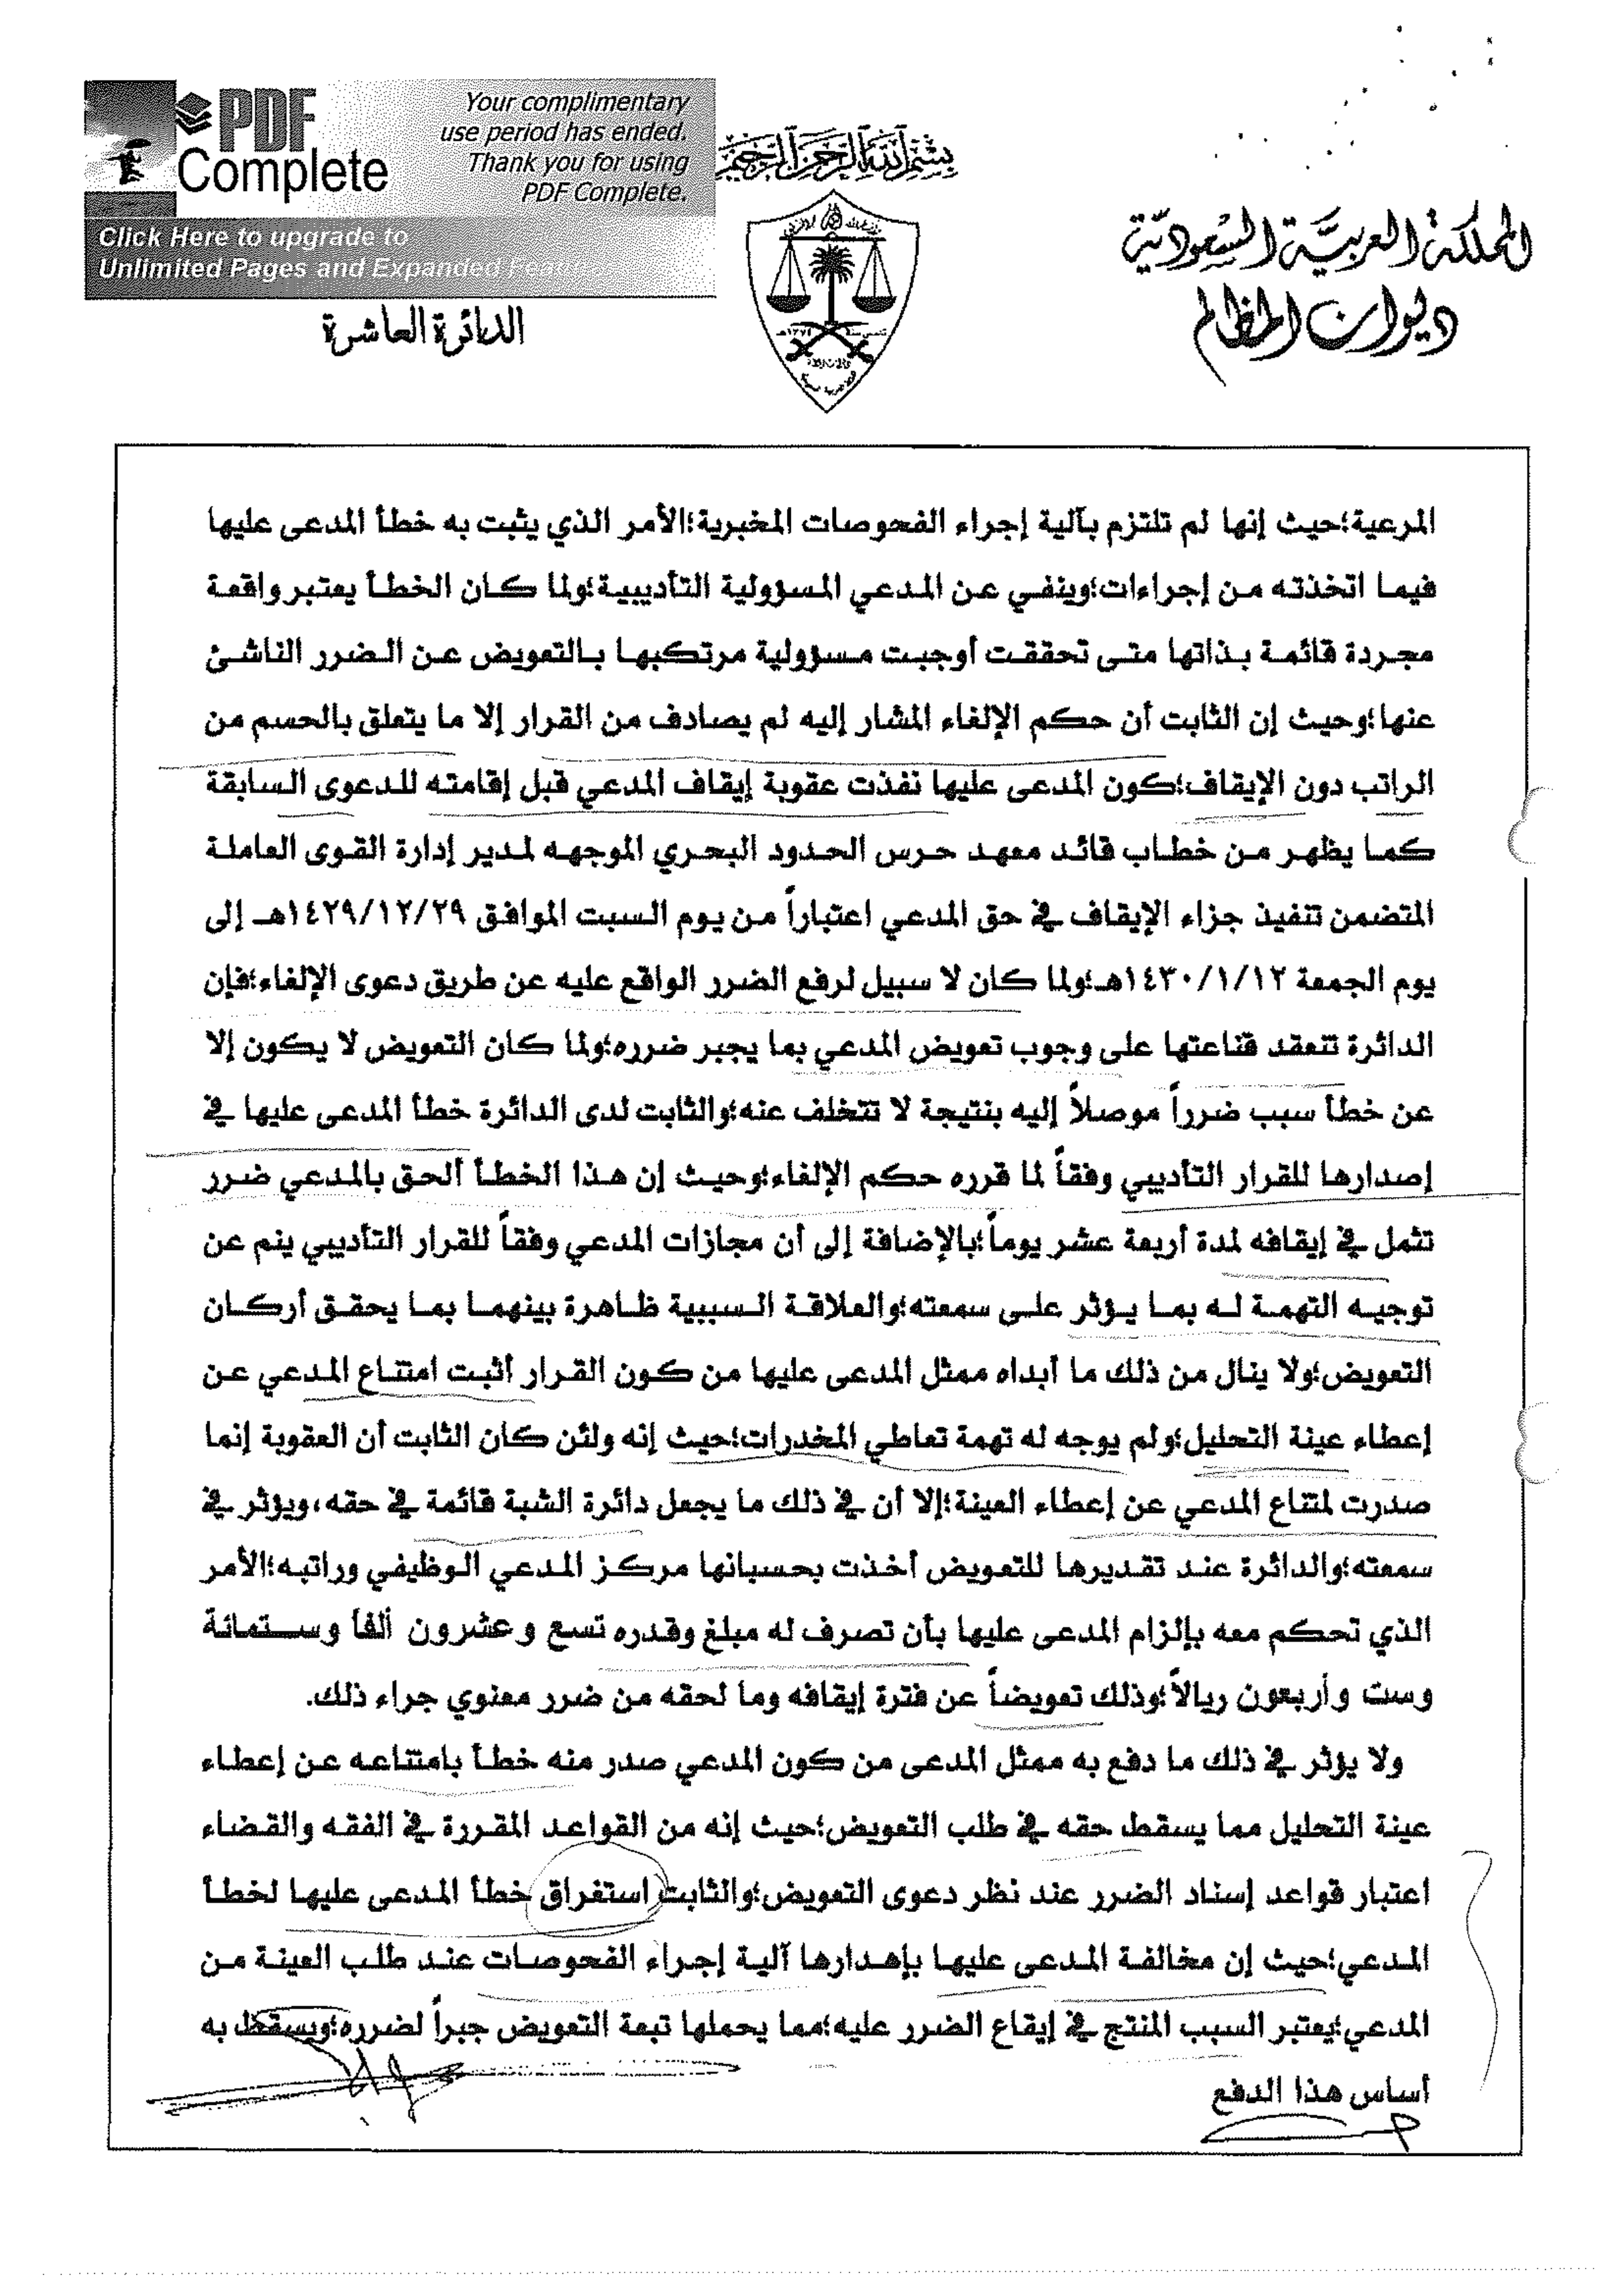 PDF Complete
Your complimentary
use period has ended.
Thank you for using
PDF Complete.
Click Here to upgrade to
Unlimited Pages and Expanded Features
بسم الله الرحمن الرحيم
المملكة العربية السعودية
ديوان المظالم
الدائرة العاشرة
المرعية؛حيث إنها لم تلتزم بآلية إجراء الفحوصات المخبرية؛الأمر الذي يثبت به خطأ المدعى عليها
فيما اتخذته من إجراءات؛وينفي عن المدعي المسؤولية التأديبية؛ولما كان الخطأ يعتبر واقعة
مجردة قائمة بذاتها متى تحققت أوجبت مسؤولية مرتكبها بالتعويض عن الضرر الناشئ
عنها؛وحيث إن الثابت أن حكم الإلغاء المشار إليه لم يصادف من القرار إلا ما يتعلق بالحسم من
الراتب دون الإيقاف؛كون المدعى عليها نفذت عقوبة إيقاف المدعي قبل إقامته للدعوى السابقة
كما يظهر من خطاب قائد معهد حرس الحدود البحري الموجهه لمدير إدارة القوى العاملة
المتضمن تنفيذ جزاء الإيقاف في حق المدعي اعتباراً من يوم السبت الموافق ١٤٢٩/١٢/٢٩هـ إلى
يوم الجمعة ١٤٣٠/١/١٢هـ؛ولما كان لا سبيل لرفع الضرر الواقع عليه عن طريق دعوى الإلغاء؛فإن
الدائرة تنعقد قناعتها على وجوب تعويض المدعي بما يجبر ضرره؛ولما كان التعويض لا يكون إلا
عن خطأ سبب ضرراً موصلاً إليه بنتيجة لا تتخلف عنه؛والثابت لدى الدائرة خطأ المدعى عليها في
إصدارها للقرار التأديبي وفقاً لما قرره حكم الإلغاء؛وحيث إن هذا الخطأ ألحق بالمدعي ضرر
تثمل في إيقافه لمدة أربعة عشر يوماً؛بالإضافة إلى أن مجازات المدعي وفقاً للقرار التأديبي ينم عن
توجيه التهمة له بما يؤثر على سمعته؛والعلاقة السببية ظاهرة بينهما بما يحقق أركان
التعويض؛ولا ينال من ذلك ما أبداه ممثل المدعى عليها من كون القرار أثبت امتناع المدعي عن
إعطاء عينة التحليل؛ولم يوجه له تهمة تعاطي المخدرات؛حيث إنه ولئن كان الثابت أن العقوبة إنما
صدرت لمتناع المدعي عن إعطاء العينة؛إلا أن في ذلك ما يجعل دائرة الشبة قائمة في حقه،ويؤثر في
سمعته؛والدائرة عند تقديرها للتعويض أخذت بحسبانها مركز المدعي الوظيفي وراتبه؛الأمر
الذي تحكم معه بإلزام المدعى عليها بأن تصرف له مبلغ وقدره تسع وعشرون ألفاً وستمائة
وست وأربعون ريالاً؛وذلك تعويضاً عن فترة إيقافه وما لحقه من ضرر معنوي جراء ذلك.
ولا يؤثر في ذلك ما دفع به ممثل المدعى من كون المدعي صدر منه خطأ بامتناعه عن إعطاء
عينة التحليل مما يسقط حقه في طلب التعويض؛حيث إنه من القواعد المقررة في الفقه والقضاء
اعتبار قواعد إسناد الضرر عند نظر دعوى التعويض؛والثابت استغراق خطأ المدعى عليها لخطأ
المدعي؛حيث إن مخالفة المدعى عليها بإهدارها آلية إجراء الفحوصات عند طلب العينة من
المدعي؛يعتبر السبب المنتج في إيقاع الضرر عليه؛مما يحملها تبعة التعويض جبراً لضرره؛ويسقط به
أساس هذا الدفع